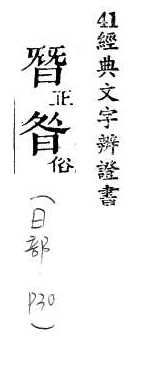 41經典文字辨證書
朁正昝俗
(日部 P30)